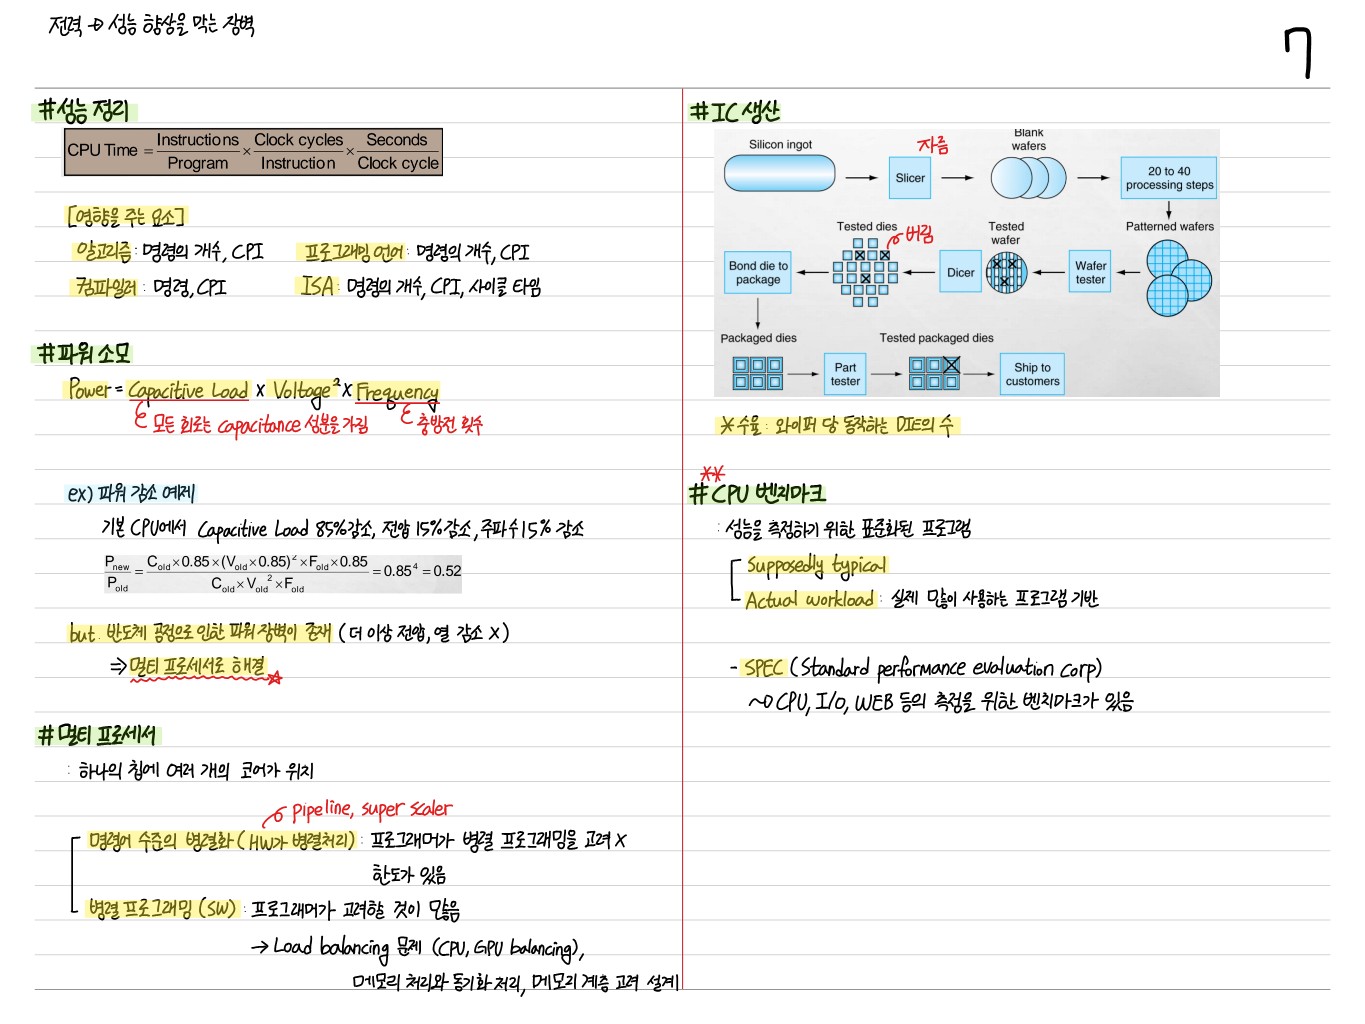 전력 → 성능 향상을 막는 장벽
7
#성능 정리
CPU Time = Instructions/Program × Clock cycles/Instruction × Seconds/Clock cycle
[영향을 주는 요소]
알고리즘 : 명령의 개수, CPI
프로그래밍 언어 : 명령의 개수, CPI
컴파일러 : 명령, CPI
ISA : 명령의 개수, CPI, 사이클 타임
#파워 소모
Power = Capacitive Load × Voltage² × Frequency
모든 회로는 capacitance 성분을 가짐
충방전 횟수
ex) 파워 감소 예제
기본 CPU에서 Capacitive Load 85%감소, 전압 15%감소, 주파수 15% 감소
Pnew/Pold = Cold×0.85×(Vold×0.85)²×Fold×0.85 / Cold×Vold²×Fold = 0.85⁴ = 0.52
but. 반도체 공정으로 인한 파워 장벽이 존재 (더 이상 전압, 열 감소 X)
⇒ 멀티 프로세서로 해결 ☆
#멀티 프로세서
: 하나의 칩에 여러 개의 코어가 위치
pipeline, super scaler
명령어 수준의 병렬화 (HW가 병렬처리) : 프로그래머가 병렬 프로그래밍을 고려 X
한도가 있음
병렬 프로그래밍 (SW) : 프로그래머가 고려할 것이 많음
→ Load balancing 문제 (CPU, GPU balancing),
메모리 처리와 동기화 처리, 메모리 계층 고려 설계
#IC 생산
Silicon ingot
자름
Slicer
Blank
wafers
20 to 40
processing steps
Tested dies
버림
Tested
wafer
Patterned wafers
Bond die to
package
Dicer
Wafer
tester
Packaged dies
Tested packaged dies
Part
tester
Ship to
customers
*수율 : 와이퍼 당 동작하는 DIE의 수
**
#CPU 벤치마크
: 성능을 측정하기 위한 표준화된 프로그램
Supposedly typical
Actual workload : 실제 많이 사용하는 프로그램 기반
- SPEC (Standard performance evaluation corp)
~> CPU, I/O, WEB 등의 측정을 위한 벤치마크가 있음